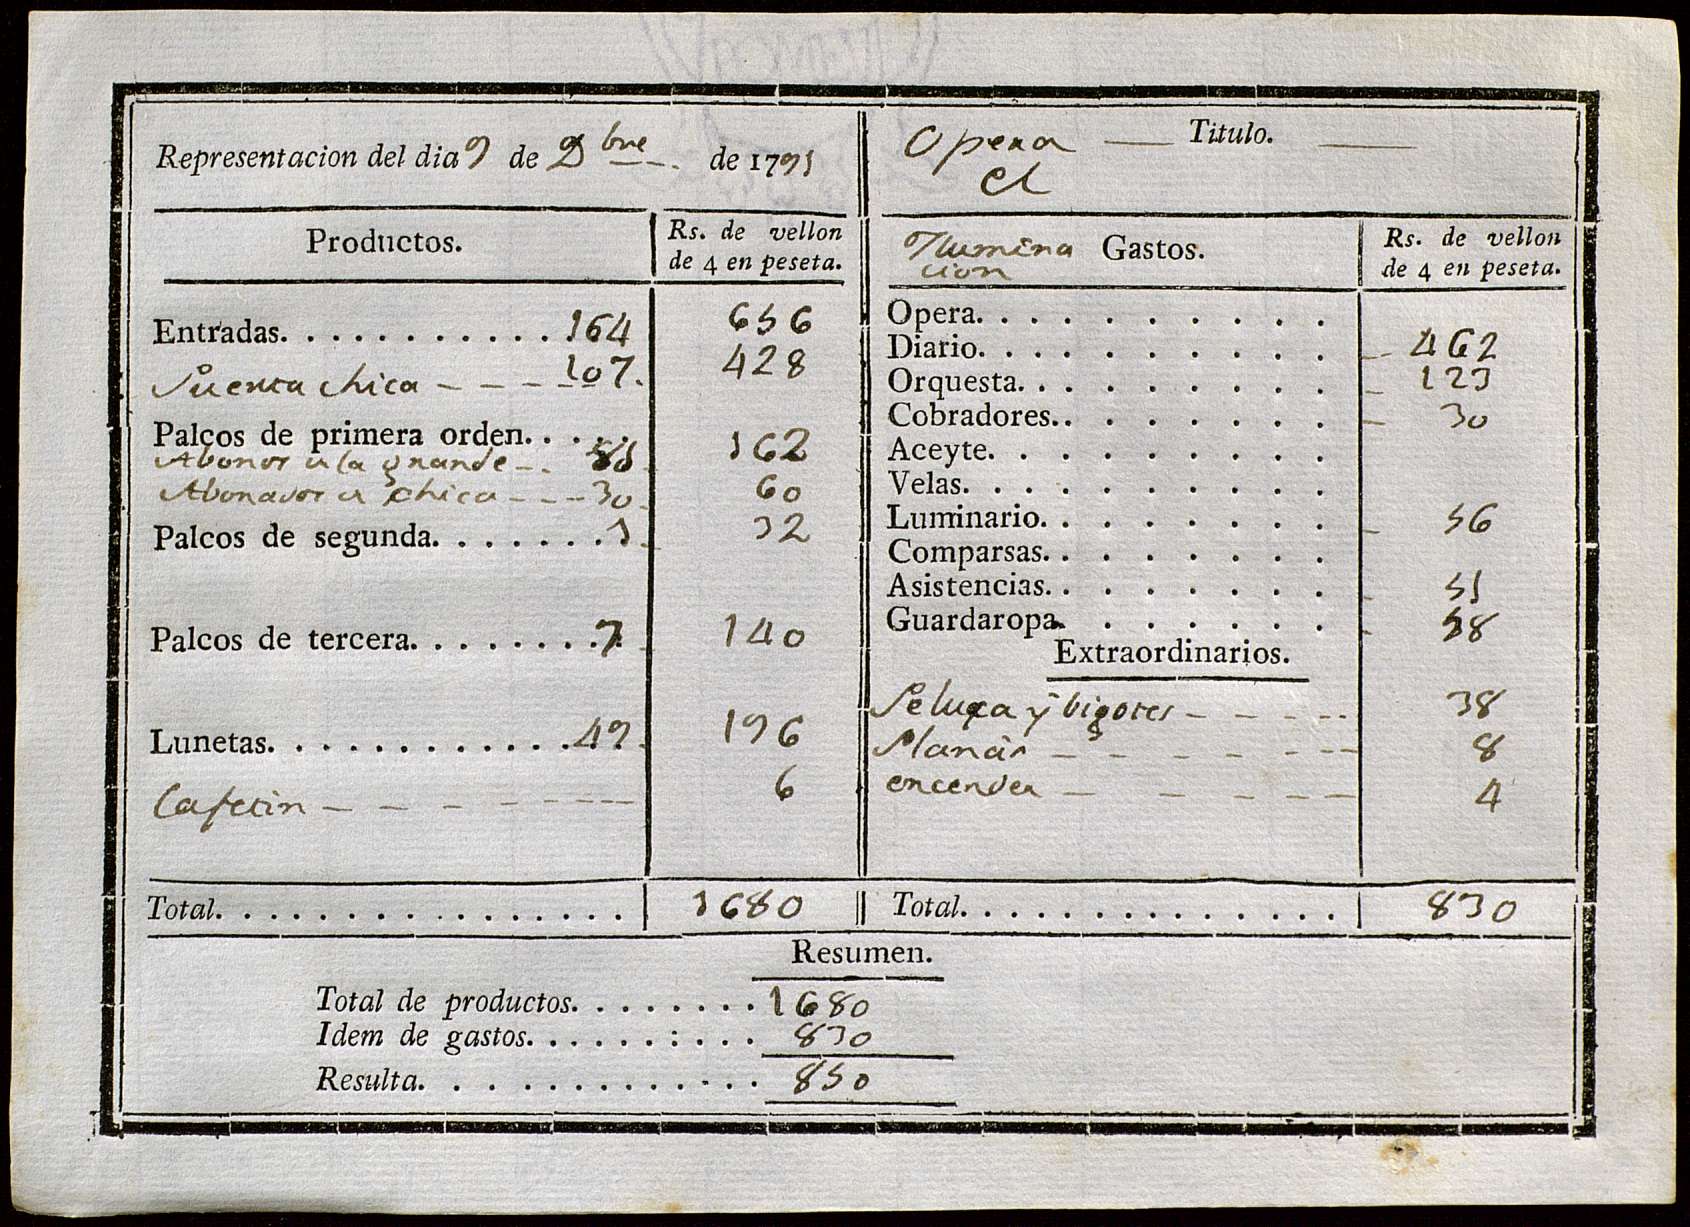 Representacion del dia 9 de Dbre de 1791
Opera — Titulo. —
el
Productos.
Rs. de vellon
de 4 en peseta.
Entradas. . . . . . . . . . . 164 656
Puerta chica - - - - 107. 428
Palcos de primera orden. . . . .
Abonos a la grande - . 81 162
Abonados a chica - - - 30 60
Palcos de segunda. . . . . . . 1 32
Palcos de tercera. . . . . . . . 7 140
Lunetas. . . . . . . . . . . . 49 196
Cafetin - - - - - - - - 6
Total. . . . . . . . . . . . . . . . . 1680
Ilumina Gastos.
cion
Rs. de vellon
de 4 en peseta.
Opera. . . . . . . . . .
Diario. . . . . . . . . . 462
Orquesta. . . . . . . . . 123
Cobradores. . . . . . . . 30
Aceyte. . . . . . . . . .
Velas. . . . . . . . . .
Luminario. . . . . . . . 56
Comparsas. . . . . . . .
Asistencias. . . . . . . . 51
Guardaropa. . . . . . . 58
Extraordinarios.
Peluca y bigotes - - - - 38
Planás - - - - - - - 8
encender - - - - - - 4
Total. . . . . . . . . . . . . . . 830
Resumen.
Total de productos. . . . . . . . 1680
Idem de gastos. . . . . . : . . . 830
Resulta. . . . . . . . . . . . . 850